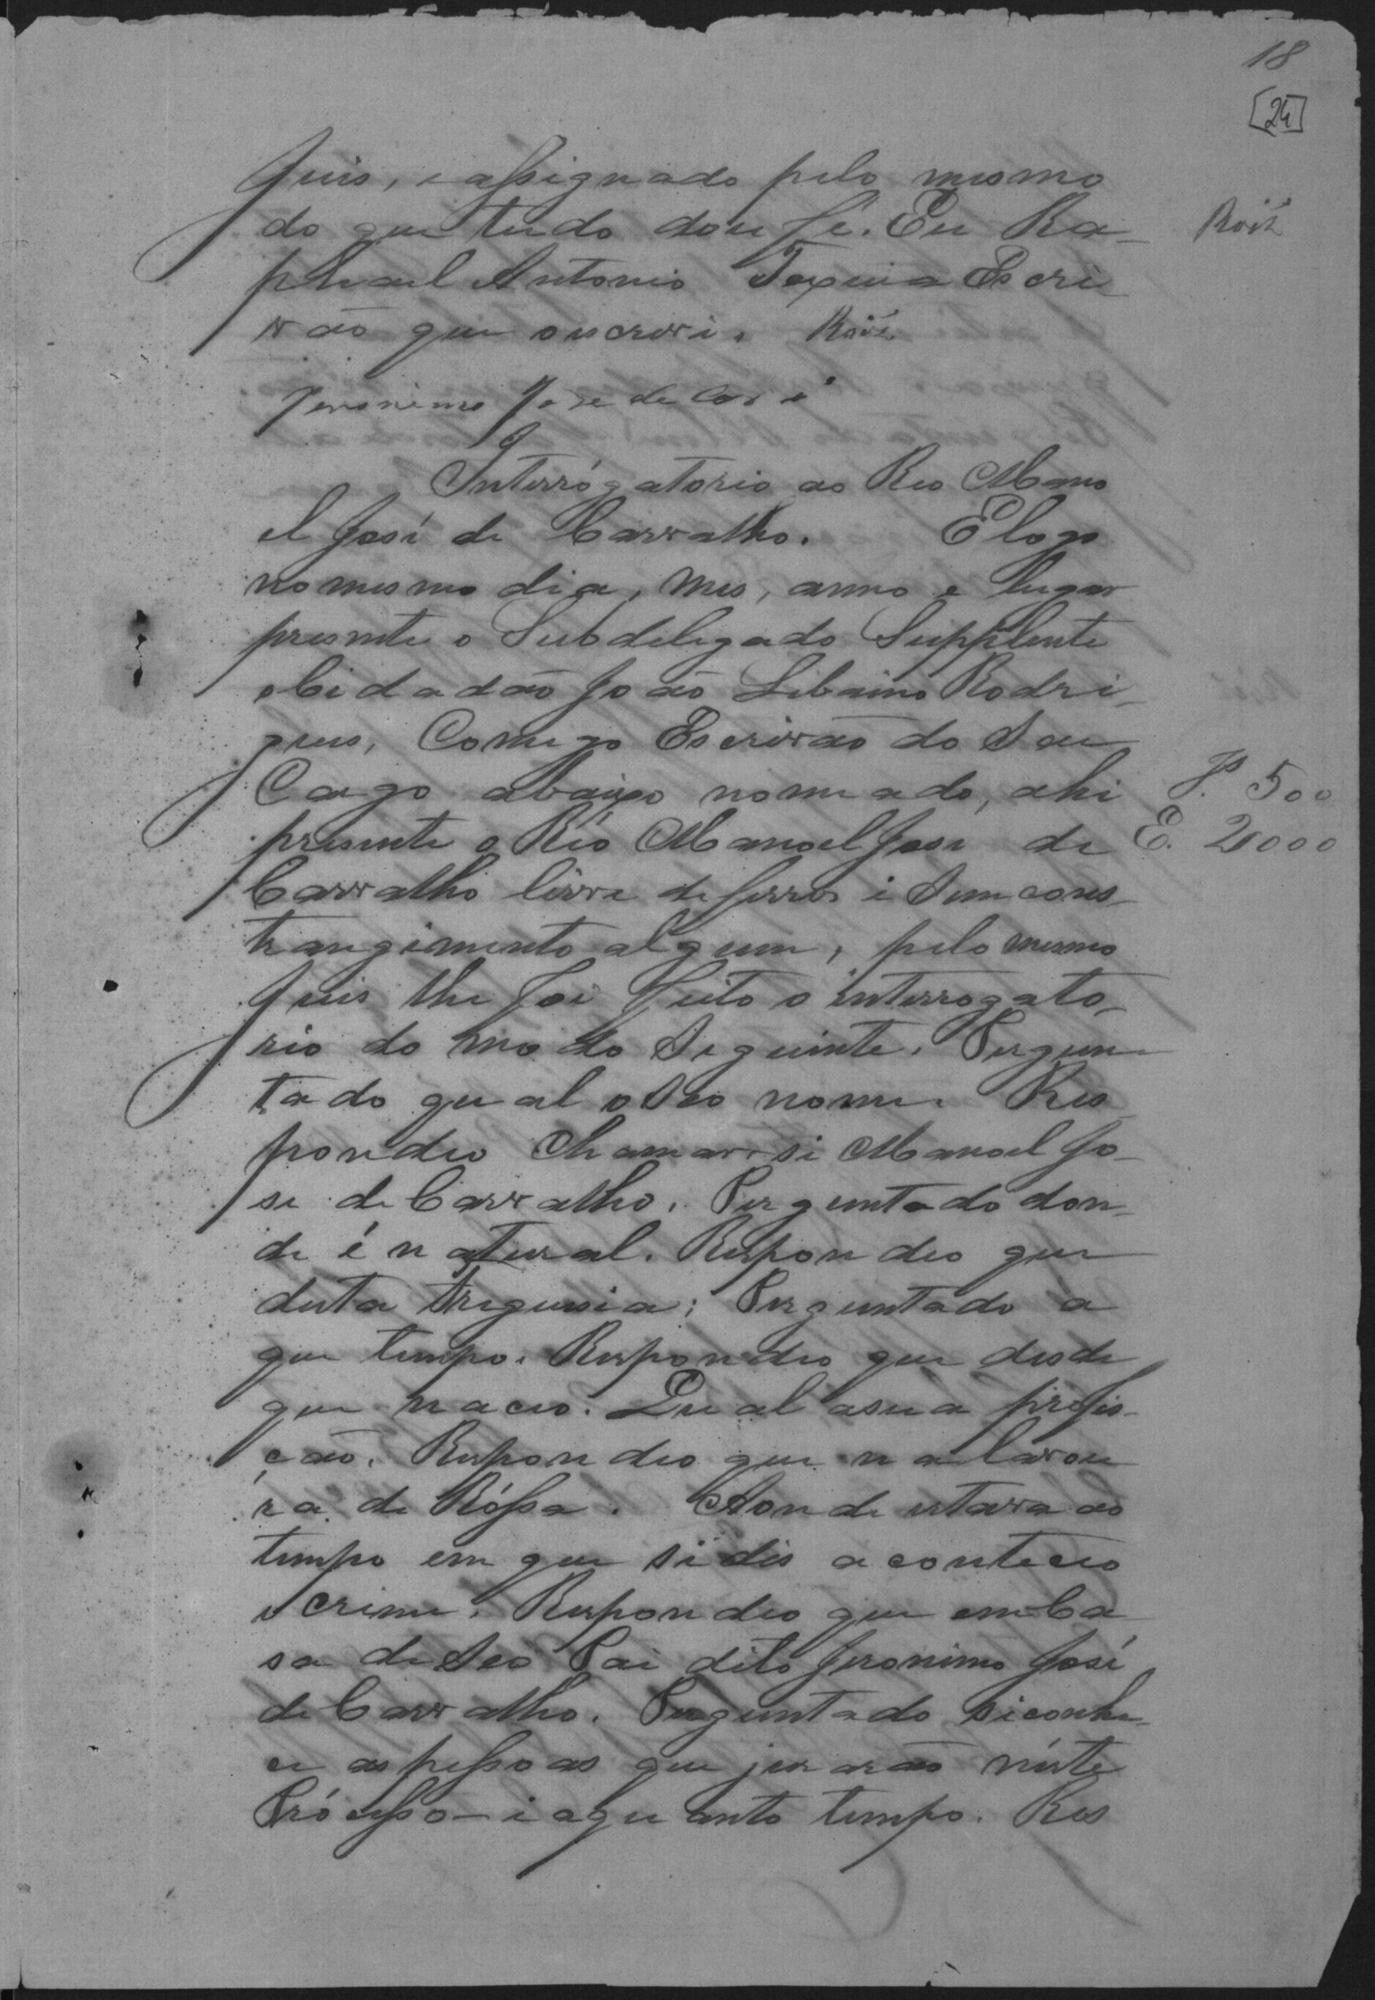 18
[24]
Juis, e assignado pelo mesmo
do que tudo dou fé. Eu Ra- Roiz
phael Antonio Texeira Escri
vão que o escrevi. Roiz
Jeronimo Jose de
Interrógatorio ao Reo Mano
el José de Carvalho. E logo
no mesmo dia, mes, anno e lugar
presente o Subdelegado Supplente
o Cidadão João Libaino Rodri-
gues, Comigo Escrivão do Seu
Cargo abaixo nomeado, ahi J. 500
presente o Réo Manoel José de E. 2000
Carvalho livre de ferros i Sem cons-
trangimento algum, pelo mesmo
Juis lhe foi feito o interrogato-
rio do modo Seguinte. Pergun-
tado qual o Seo nome. Res
pondeo Chamar-si Manoel Jo-
se de Carvalho. Perguntado don-
de é natural. Respondeo que
desta freguesia; Perguntado a
que tempo. Respondeo que desde
que naceo. Qual a sua profis-
ção. Respondeo que na lavou
ra de Róssa. Aonde estava ao
tempo em que si dis aconteceo
o crime. Respondeo que em Ca
sa de Seo Pai dito Jeronimo José
de Carvalho. Perguntado si conhe-
ce as pessoas que jurarão néste
Prócésso - i a quanto tempo. Res